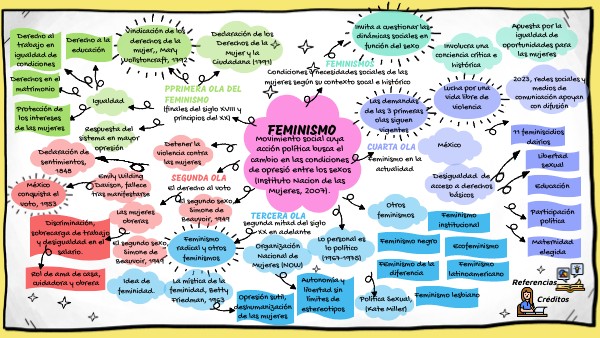 Derecho al
trabajo en
igualdad de
condiciones
Derecho a la
educación
Vindicación de los
derechos de la
mujer,, Mary
Wollstoncraft, 1792
Declaración de los
Derechos de la
Mujer y la
Ciudadana (1791)
Invita a cuestionar las
dinámicas sociales en
función del sexo
Involucra una
conciencia crítica e
histórica
Apuesta por la
igualdad de
oportunidades para
las mujeres
Derechos en el
matrimonio
Protección de
los intereses
de las mujeres
Igualdad
Respuesta del
sistema en mayor
opresión
PPRIMERA OLA DEL
FEMINISMO
(finales del siglo XVIII y
principios del XX)
FEMINISMOS
Condiciones y necesidades sociales de las
mujeres según su contexto socal e histórico
Las demandas
de las 3 primeras
olas siguen
vigentes
Lucha por una
vida libre de
violencia
2023, redes sociales y
medios de
comunicación apoyan
con difusión
FEMINISMO
Movimiento social cuya
acción política busca el
cambio en las condiciones
de opresió entre los sexos
(Instituto Nacion de las
Mujeres, 2007).
CUARTA OLA
Feminismo en la
actualidad
México
Desigualdad de
acceso a derechos
básicos
11 feminicidios
dairios
Libertad
sexual
Educación
Participación
política
Maternidad
elegida
Declaración de
sentimientos,
1848
Detener la
violencia contra
las mujeres
México
conquista el
voto, 1953
Emily Wilding
Davison, fallece
tras manifestarse
SEGUNDA OLA
El derecho al voto
Las mujeres
obreras
El segundo sexo,
Simone de
Beauvoir, 1949
Discriminación,
sobrecarga de trabajo
y desigualdad en el
salario.
El segundo sexo,
Simone de
Beauvoir, 1949
Rol de ama de casa,
cuidadora y obrera
TERCERA OLA
segunda mitad del siglo
XX en adelante
Feminismo
radical y otros
feminismos
Organización
Nacional de
Mujeres (NOW)
Lo personal es
lo político
(1967-1975)
Idea de
feminidad.
La mística de la
feminidad, Betty
Friedman, 1963
Opresión sutil,
deshumanización
de las mujeres
Autonomía y
libertad sin
límites de
estereotipos
Política Sexual,
(Kate Miller)
Otros
feminismos
Feminismo
institucional
Feminismo negro
Ecofeminismo
Feminismo de la
diferencia
Feminismo
latinoamericano
Feminismo lesbiano
Referencias
Créditos